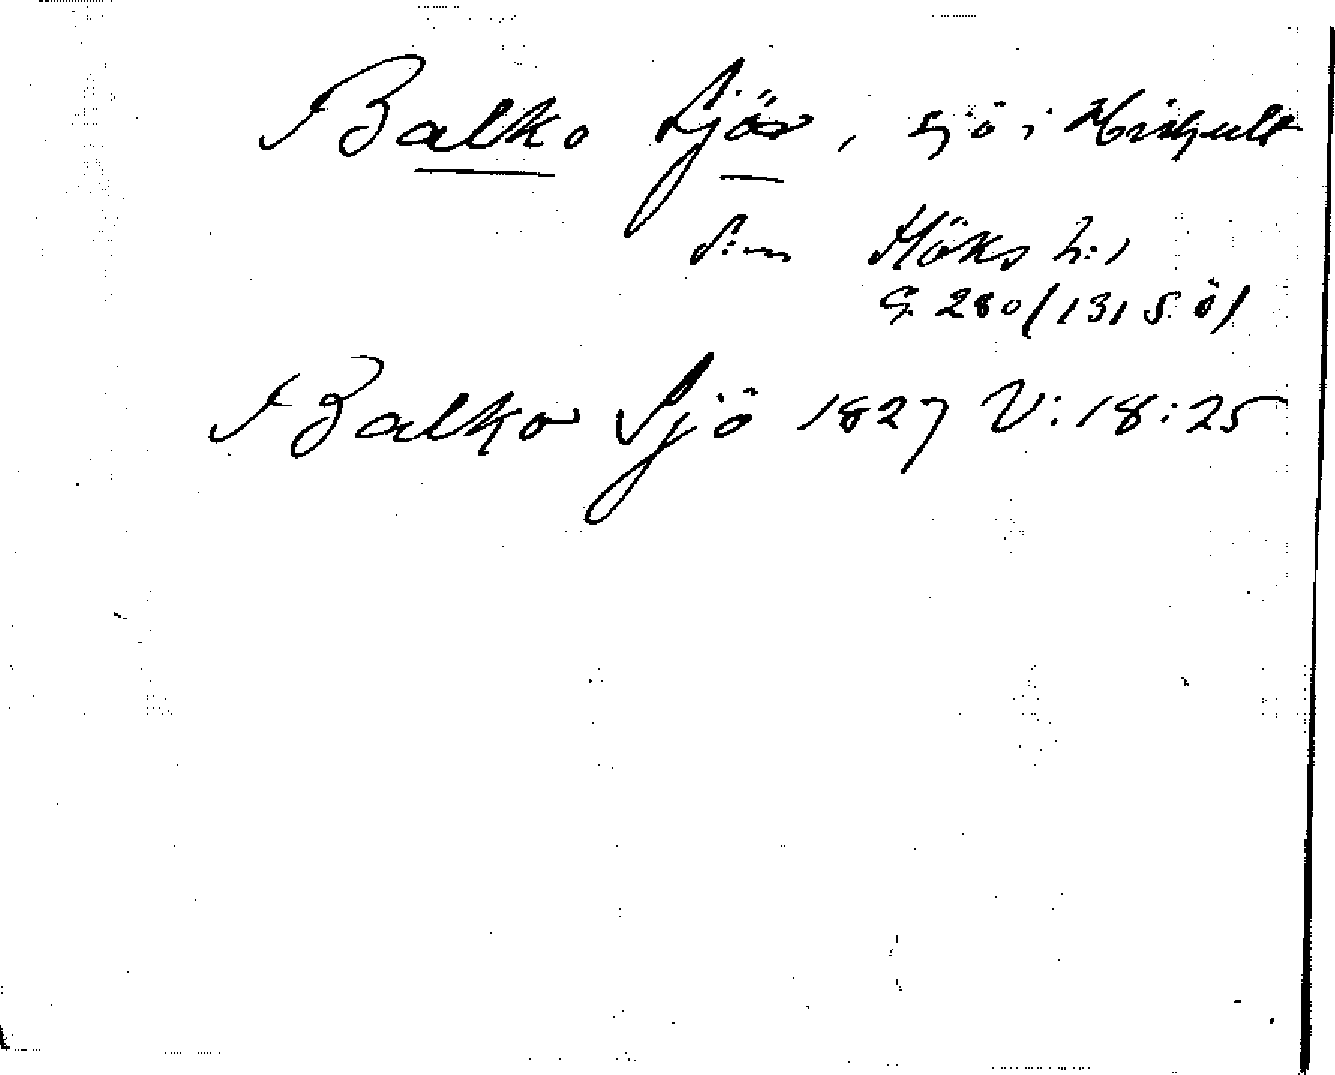 Balko Sjö, sjö i Hishult
s:n Höks h:d
G 280/131 S. ö/
Balko Sjö 1827 V:18:25